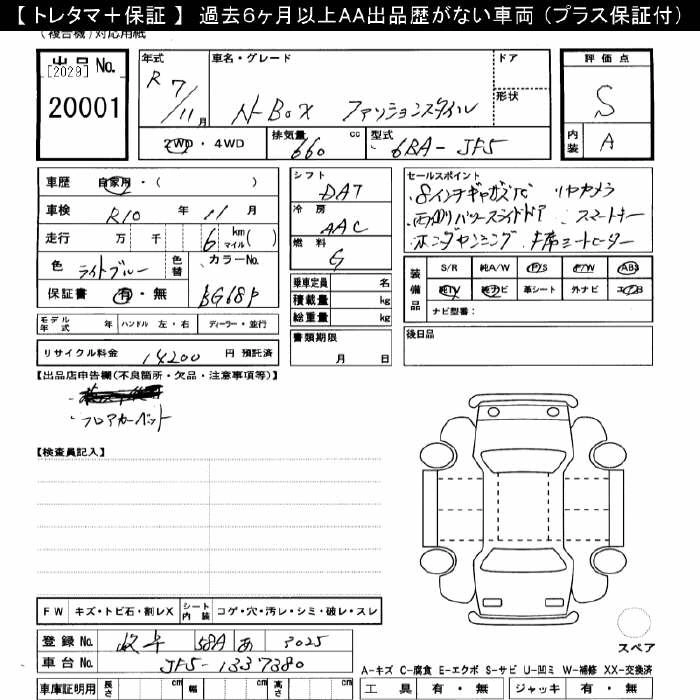 【トレタマ＋保証】 過去6ヶ月以上AA出品歴がない車両（プラス保証付）
(複合機)対応用紙
出品 No.
[2029]
20001
年式 R 7/11 月
車名・グレード
N-Box ファッションスタイル
ドア
形状
2WD・4WD
排気量 660 cc
型式 6BA-JF5
評価点
S
内装 A
車歴 自家用・( )
車検 R10 年 11 月
走行 万 千 6 km マイル( )
色 ライトブルー 色替
カラーNo. BG68P
保証書 有・無
モデル年式 年 ハンドル 左・右 ディーラー・並行
リサイクル料金 14200 円 預託済
シフト DAT
冷房 AAC
燃料 G
乗車定員 名
積載量 kg
総重量 kg
書類期限
月 日
セールスポイント
・8インチギャザズTV リヤカメラ
・両側パワースライドドア スマートキー
・ホンダセンシング 片席シートヒーター
装備品
S/R 純A/W P/S P/W ABS
純TV 純ナビ 革シート 外ナビ エアB
ナビ型番：
後日品
【出品店申告欄(不良箇所・欠品・注意事項等)】
・フロアカーペット
【検査員記入】
FW キズ・トビ石・割レX シート内装 コゲ・穴・汚レ・シミ・破レ・スレ
登録 No. 岐阜 581A あ 3025
車台 No. JF5-1337380
車庫証明用 長さ cm 幅 cm 高さ cm
スペア
A-キズ C-腐食 E-エクボ S-サビ U-凹ミ W-補修 XX-交換済
工具 有・無 ジャッキ 有・無